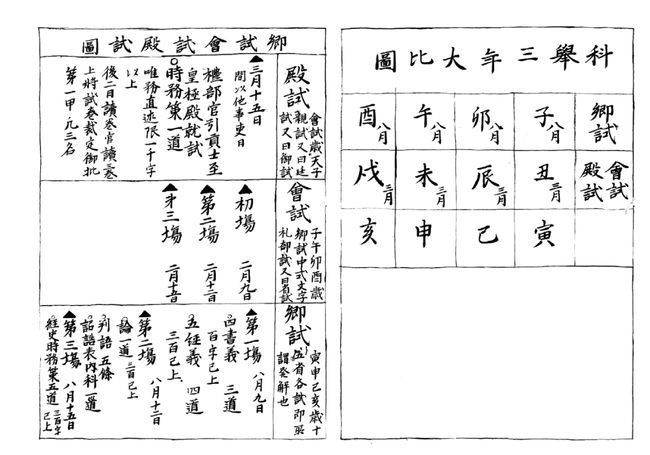 科舉三年大比圖
鄉試
子八月
卯八月
午八月
酉八月
會試
殿試
丑三月
辰三月
未三月
戌三月
寅
己
申
亥
鄉試會試殿試圖
殿試
會試歲天子
親試又曰廷
試又曰御試
▲三月十五日
間以他事更日
禮部官引貢士至
皇極殿就試
時務策一道
唯務直述限一千字
以上
後二日讀卷官讀卷
上將試卷裁定御批
第一甲凡三名
會試
子午卯酉歲
鄉試中式文字
礼部試又曰省試
▲初場 二月九日
▲第二場 二月十二日
▲才三場 二月十五日
鄉試
寅申己亥歲十
省各試即
謂癸解也
▲第一場 八月九日
四書義 三道
百字已上
五經義 四道
三百已上
▲第二場 八月十二日
論一道 三百已上
判語五條
詔誥表內科一道
▲第三場 八月十五日
經史時務策五道 三百字
已上